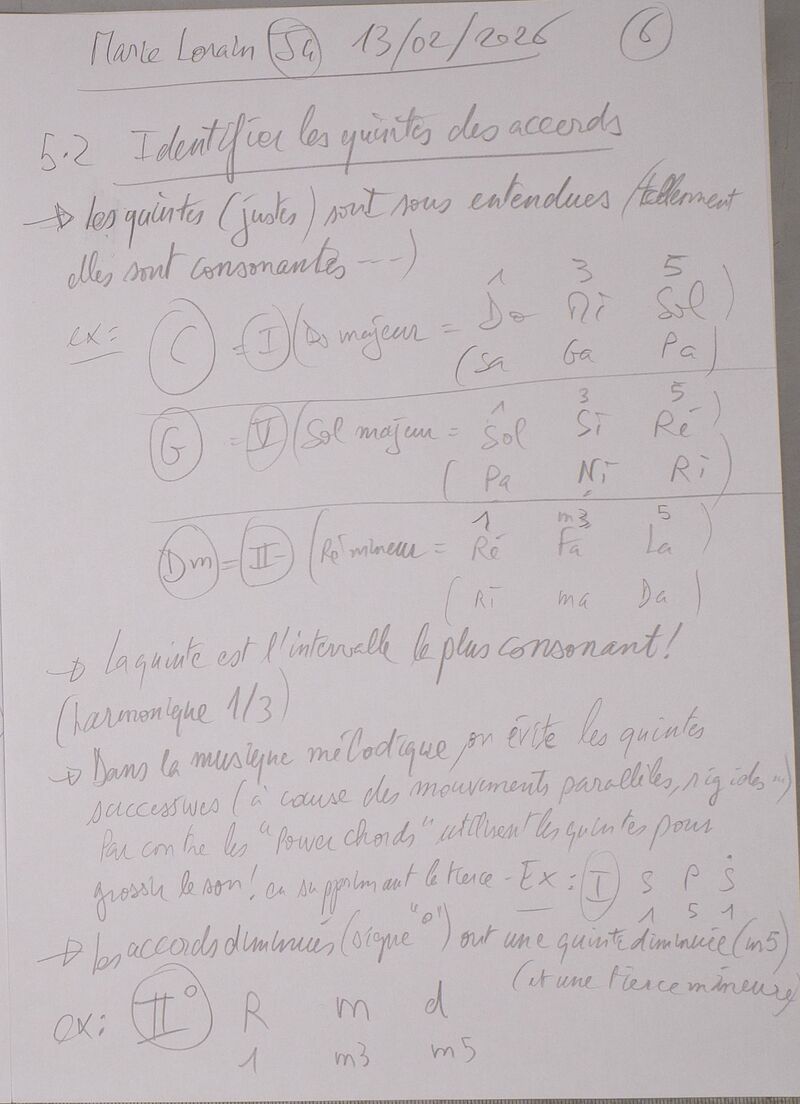 Marie Lorain Sa 13/02/2026 6
5.2 Identifier les quintes des accords
→ Les quintes (justes) sont sous entendues (tellement
elles sont consonantes ---)
1 3 5
ex: C = I (Do majeur = Do Mi Sol)
(Sa Ga Pa)
1 3 5
G = V (Sol majeur = Sol Si Ré)
(Pa Ni Ri)
1 m3 5
Dm = II- (Ré mineur = Ré Fa La)
(Ri ma Da)
→ La quinte est l'intervalle le plus consonant!
(harmonique 1/3)
→ Dans la musique mélodique, on évite les quintes
successives (à cause des mouvements parallèles, rigides ...)
Par contre les "Power chords" utilisent les quintes pour
grossir le son! en supprimant la tierce - Ex: I S P Ṡ
1 5 1
→ Les accords diminués (signe "o") ont une quinte diminuée (m5)
(et une tierce mineure)
ex: II° R m d
1 m3 m5